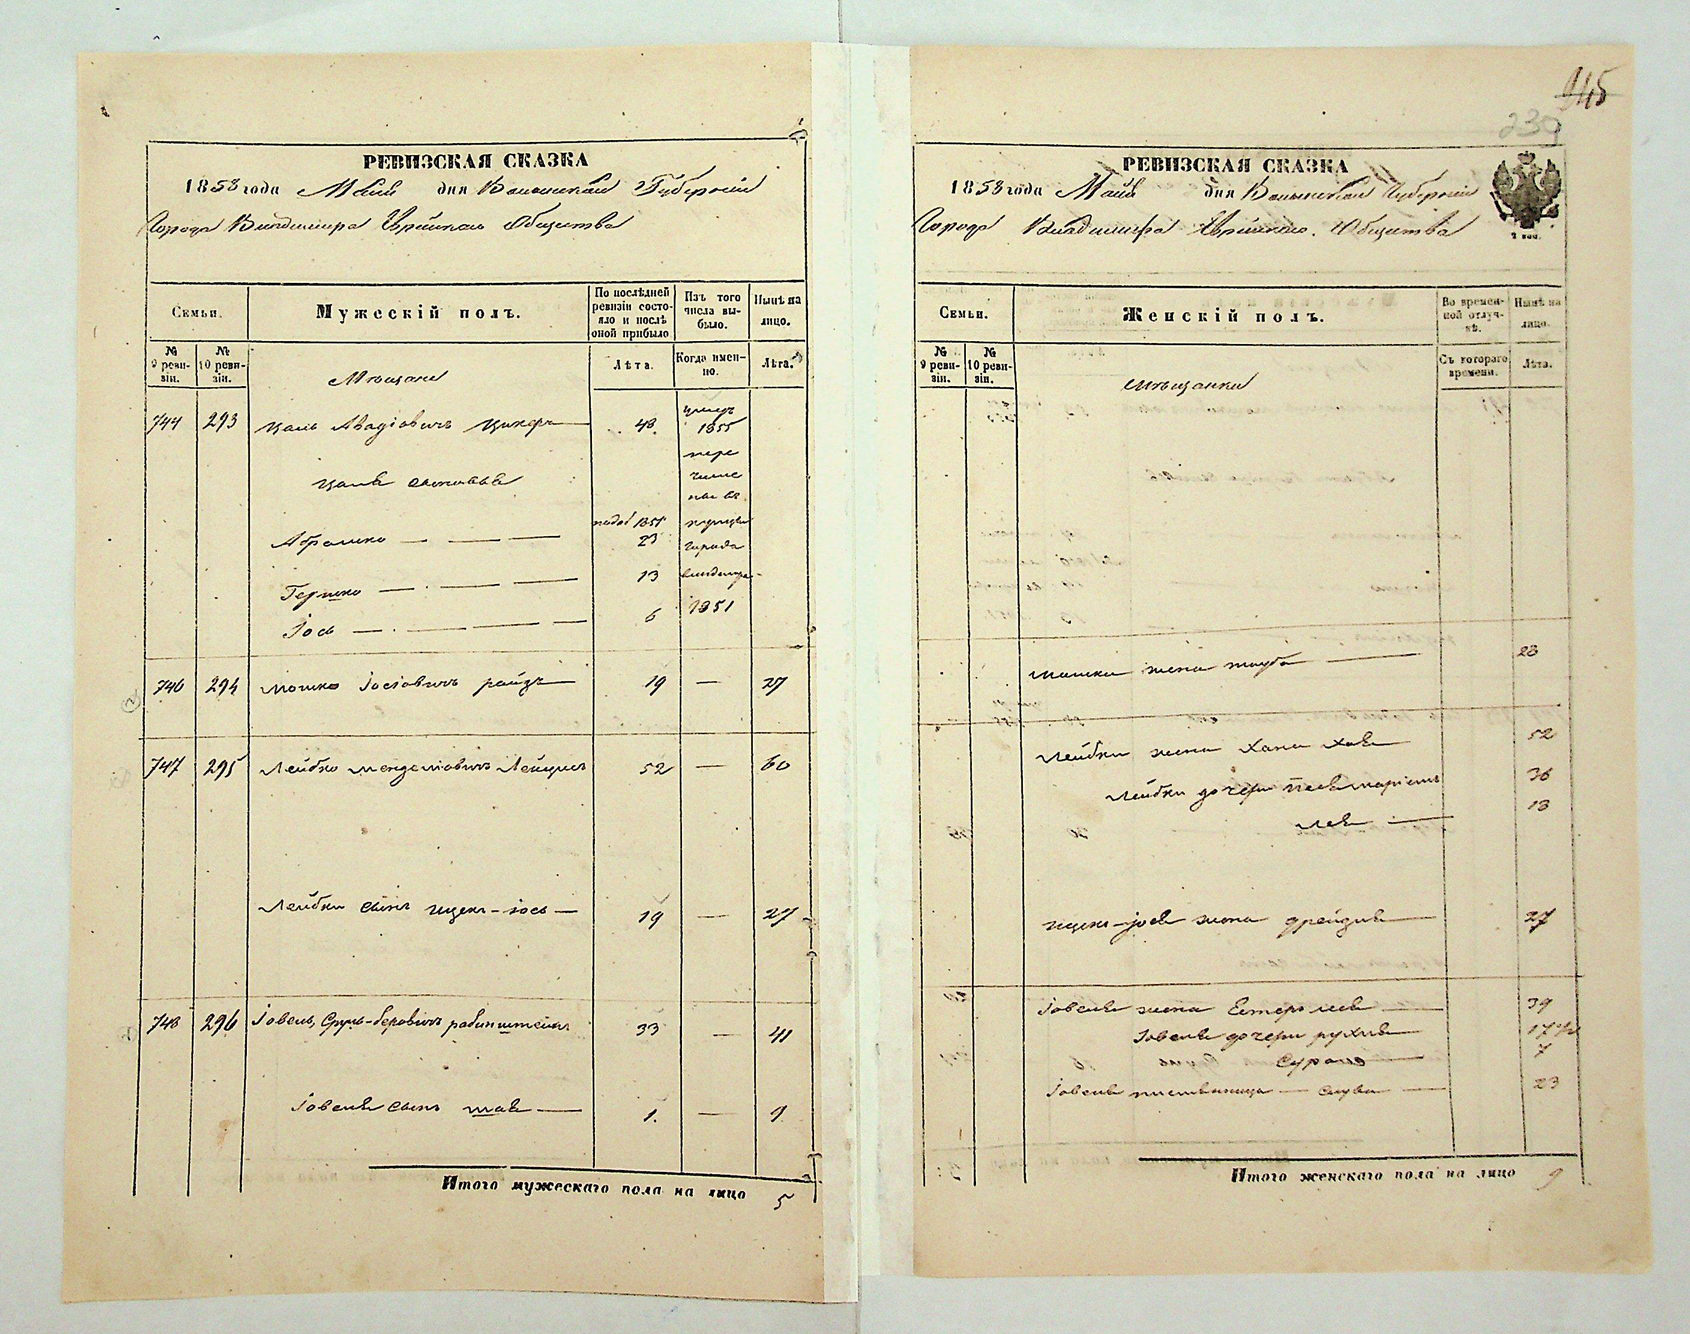 РЕВИЗСКАЯ СКАЗКА
1858 года Маія дня Волынской Губерніи
Города Владимира Еврейскаго Общества
Семьи.
Мужескій полъ.
По послѣдней ревизіи состояло и послѣ оной прибыло
Изъ того числа выбыло.
Нынѣ на лицо.
№ 9 ревизіи.
№ 10 ревизіи.
Мѣщане
Лѣта.
Когда именно.
Лѣта.
744 293 Цаль Авадіовичъ Цукеръ 48 умеръ 1855
Цаля сыновья
Абрамко 23
Гершко 13
Іось 6
перечислены въ купцы города Владимира 1851
746 294 Мошко Іосіовичъ 19 — 27
747 295 Лейбко Менделіовичъ 52 — 60
Лейбки сынъ Ицекъ-Іось — 19 — 27
748 296 Іовель, Сруль-Беровичъ Рабинштейнъ 33 — 41
Іовеля сынъ — 1. — 9
Итого мужескаго пола на лицо 5
945
239
РЕВИЗСКАЯ СКАЗКА
1858 года Маія дня Волынской Губерніи
Города Владимира Еврейскаго Общества
2 коп.
Семьи.
Женскій полъ.
Во временной отлучкѣ.
Нынѣ на лицо.
№ 9 ревизіи.
№ 10 ревизіи.
Мѣщанки
Съ котораго времени.
Лѣта.
Мошки жена Тауба 28
Лейбки жена Хана Хая 52
Лейбки дочери Песя Маріемъ 36
Лея 13
Ицекъ-Іося жена Фрейдля 27
Іовеля жена Естеръ Лея 39
Іовеля дочери Рухля 17
Сура 7
Іовеля 23
Итого женскаго пола на лицо 9